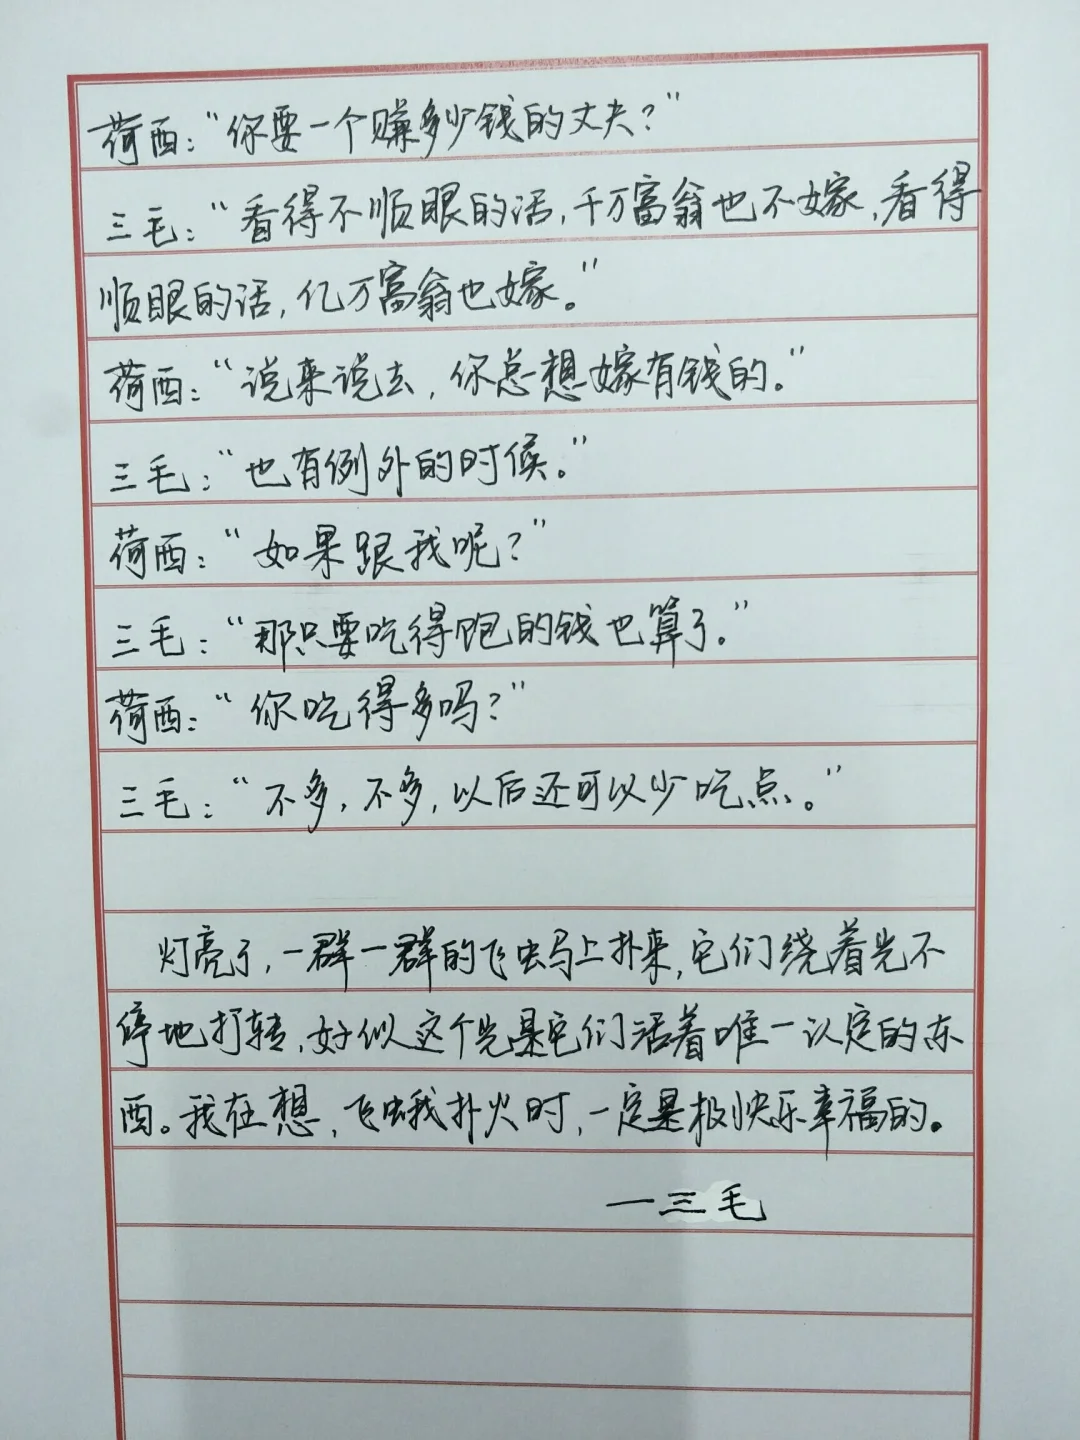 荷西：“你要一个赚多少钱的丈夫？”
三毛：“看得不顺眼的话，千万富翁也不嫁，看得
顺眼的话，亿万富翁也嫁。”
荷西：“说来说去，你总想嫁有钱的。”
三毛：“也有例外的时候。”
荷西：“如果跟我呢？”
三毛：“那只要吃得饱的钱也算了。”
荷西：“你吃得多吗？”
三毛：“不多，不多，以后还可以少吃点。”
灯亮了，一群一群的飞虫马上扑来，它们绕着光不
停地打转，好似这个光是它们活着唯一认定的东
西。我在想，飞蛾扑火时，一定是极快乐幸福的。
一三毛